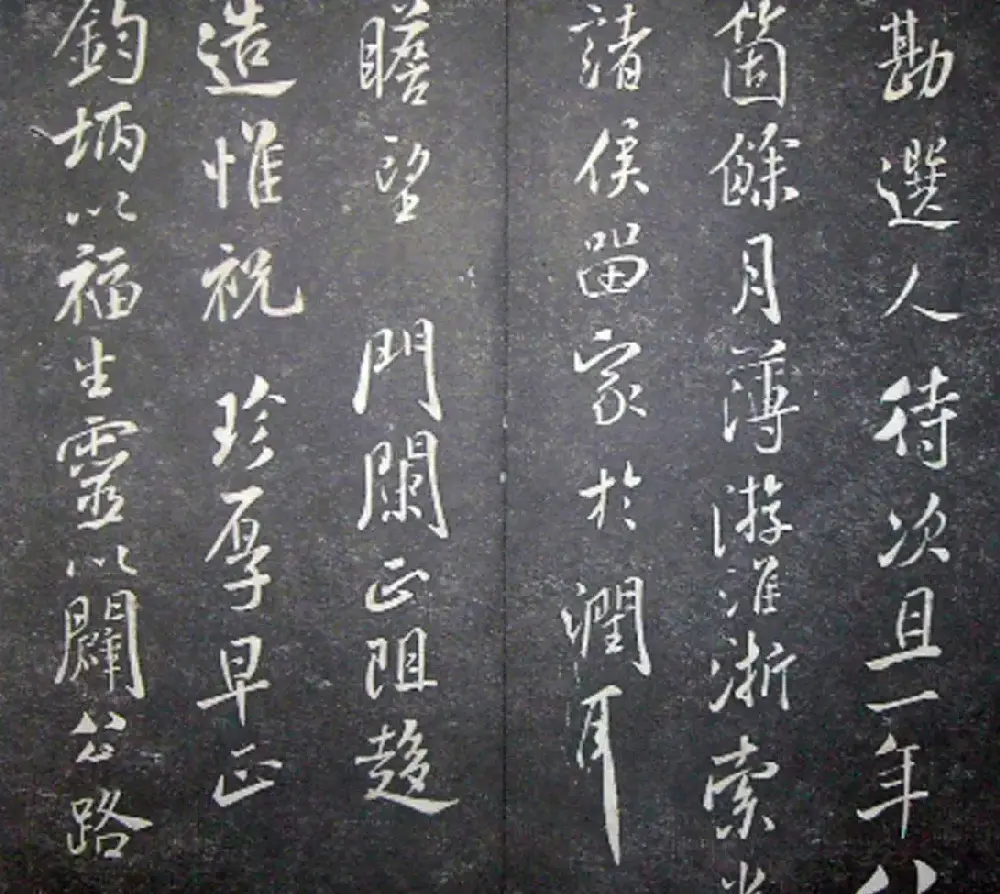 勘選人待次且一年
箇餘月薄游淮浙索
諸侯留家於潤耳
瞻望 門闌正阻趨
造惟祝 珍厚早正
鈞炳以福生靈以闢公路